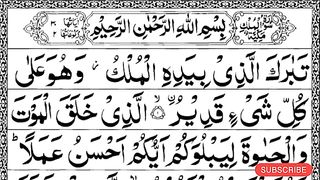 بِسْمِ اللهِ الرَّحْمٰنِ الرَّحِيْمِ
تَبٰرَكَ الَّذِىْ بِيَدِهِ الْمُلْكُ ۫ وَهُوَ عَلٰى
كُلِّ شَىْءٍ قَدِيْرٌ ۙ الَّذِىْ خَلَقَ الْمَوْتَ
وَالْحَيٰوةَ لِيَبْلُوَكُمْ اَيُّكُمْ اَحْسَنُ عَمَلًا ؕ
SUBSCRIBE